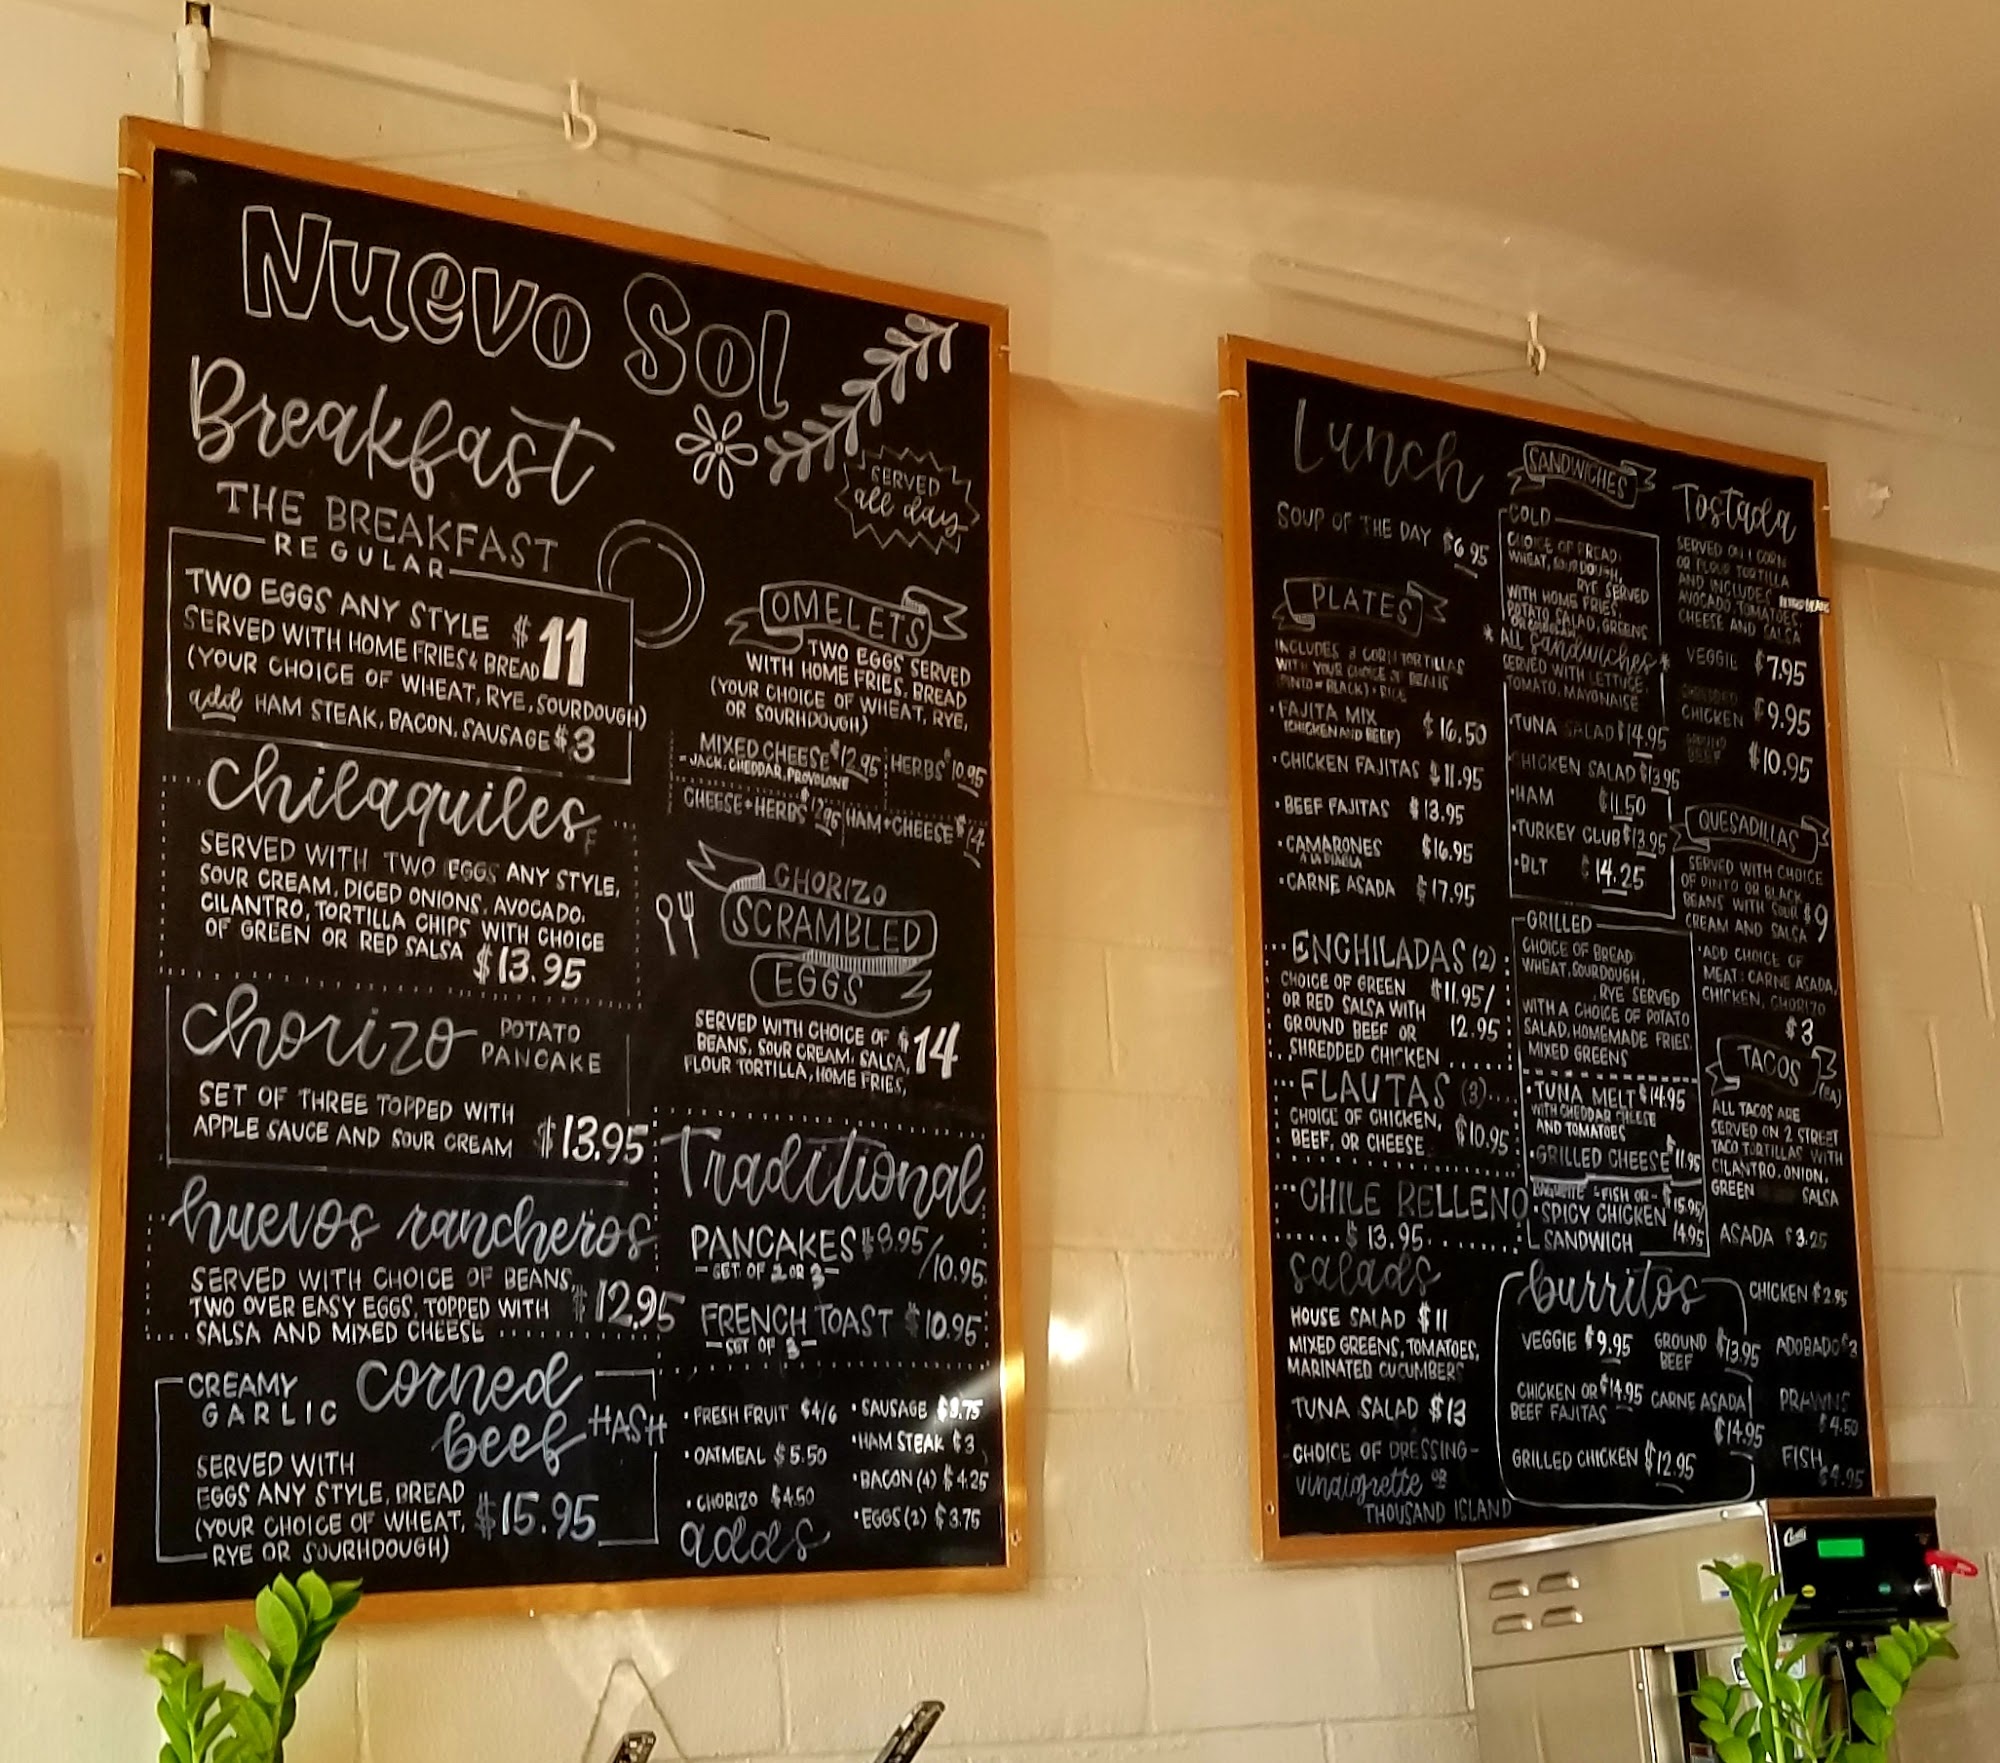 Nuevo Sol
Breakfast
SERVED
all day
THE BREAKFAST
REGULAR
TWO EGGS ANY STYLE $11
SERVED WITH HOME FRIES & BREAD
(YOUR CHOICE OF WHEAT, RYE, SOURDOUGH)
add HAM STEAK, BACON, SAUSAGE $3
chilaquiles
SERVED WITH TWO EGGS ANY STYLE,
SOUR CREAM, DICED ONIONS, AVOCADO,
CILANTRO, TORTILLA CHIPS WITH CHOICE
OF GREEN OR RED SALSA $13.95
chorizo POTATO
PANCAKE
SET OF THREE TOPPED WITH
APPLE SAUCE AND SOUR CREAM $13.95
huevos rancheros
SERVED WITH CHOICE OF BEANS,
TWO OVER EASY EGGS, TOPPED WITH $12.95
SALSA AND MIXED CHEESE
CREAMY
GARLIC
corned
beef HASH
SERVED WITH
EGGS ANY STYLE, BREAD
(YOUR CHOICE OF WHEAT, $15.95
RYE OR SOURHDOUGH)
OMELETS
TWO EGGS SERVED
WITH HOME FRIES, BREAD
(YOUR CHOICE OF WHEAT, RYE,
OR SOURHDOUGH)
MIXED CHEESE $12.95 HERBS $10.95
- JACK, CHEDDAR, PROVOLONE
CHEESE + HERBS $12.95 HAM + CHEESE $14
CHORIZO
SCRAMBLED
EGGS
SERVED WITH CHOICE OF $14
BEANS, SOUR CREAM, SALSA,
FLOUR TORTILLA, HOME FRIES,
Traditional
PANCAKES $8.95/10.95
- SET OF 2 OR 3 -
FRENCH TOAST $10.95
- SET OF 3 -
• FRESH FRUIT $4/6
• OATMEAL $5.50
• CHORIZO $4.50
• SAUSAGE $3.75
• HAM STEAK $3
• BACON (4) $4.25
• EGGS (2) $3.75
adds
Lunch
SOUP OF THE DAY $6.95
PLATES
INCLUDES 3 CORN TORTILLAS
WITH YOUR CHOICE OF BEANS
(PINTO = BLACK) + RICE
• FAJITA MIX $16.50
(CHICKEN AND BEEF)
• CHICKEN FAJITAS $11.95
• BEEF FAJITAS $13.95
• CAMARONES $16.95
A LA DIABLA
• CARNE ASADA $17.95
ENCHILADAS (2)
CHOICE OF GREEN $11.95/
OR RED SALSA WITH
GROUND BEEF OR 12.95
SHREDDED CHICKEN
FLAUTAS (3)
CHOICE OF CHICKEN,
BEEF, OR CHEESE $10.95
CHILE RELLENO
$13.95
salads
HOUSE SALAD $11
MIXED GREENS, TOMATOES,
MARINATED CUCUMBERS
TUNA SALAD $13
- CHOICE OF DRESSING -
vinaigrette OR
THOUSAND ISLAND
SANDWICHES
COLD
CHOICE OF BREAD:
WHEAT, SOURDOUGH,
RYE SERVED
WITH HOME FRIES,
POTATO SALAD, GREENS
* ALL Sandwiches *
SERVED WITH LETTUCE,
TOMATO, MAYONAISE
• TUNA SALAD $14.95
• CHICKEN SALAD $13.95
• HAM $11.50
• TURKEY CLUB $13.95
• BLT $14.25
GRILLED
CHOICE OF BREAD
WHEAT, SOURDOUGH,
RYE SERVED
WITH A CHOICE OF POTATO
SALAD, HOMEMADE FRIES,
MIXED GREENS
• TUNA MELT $14.95
WITH CHEDDAR CHEESE
AND TOMATOES
• GRILLED CHEESE $11.95
BAGUETTE - FISH OR - $15.95/
• SPICY CHICKEN 14.95
SANDWICH
burritos
VEGGIE $9.95 GROUND BEEF $13.95
CHICKEN OR $14.95 CARNE ASADA
BEEF FAJITAS $14.95
GRILLED CHICKEN $12.95
Tostada
SERVED ON 1 CORN
OR FLOUR TORTILLA
AND INCLUDES
AVOCADO, TOMATOES,
CHEESE AND SALSA
VEGGIE $7.95
SHREDDED
CHICKEN $9.95
GROUND
BEEF $10.95
QUESADILLAS
SERVED WITH CHOICE
OF PINTO OR BLACK
BEANS WITH SOUR $9
CREAM AND SALSA
• ADD CHOICE OF
MEAT: CARNE ASADA,
CHICKEN, CHORIZO
$3
TACOS (EA)
ALL TACOS ARE
SERVED ON 2 STREET
TACO TORTILLAS WITH
CILANTRO, ONION,
GREEN SALSA
ASADA $3.25
CHICKEN $2.95
ADOBADO $3
PRAWNS
$4.50
FISH
$4.95
Curtis